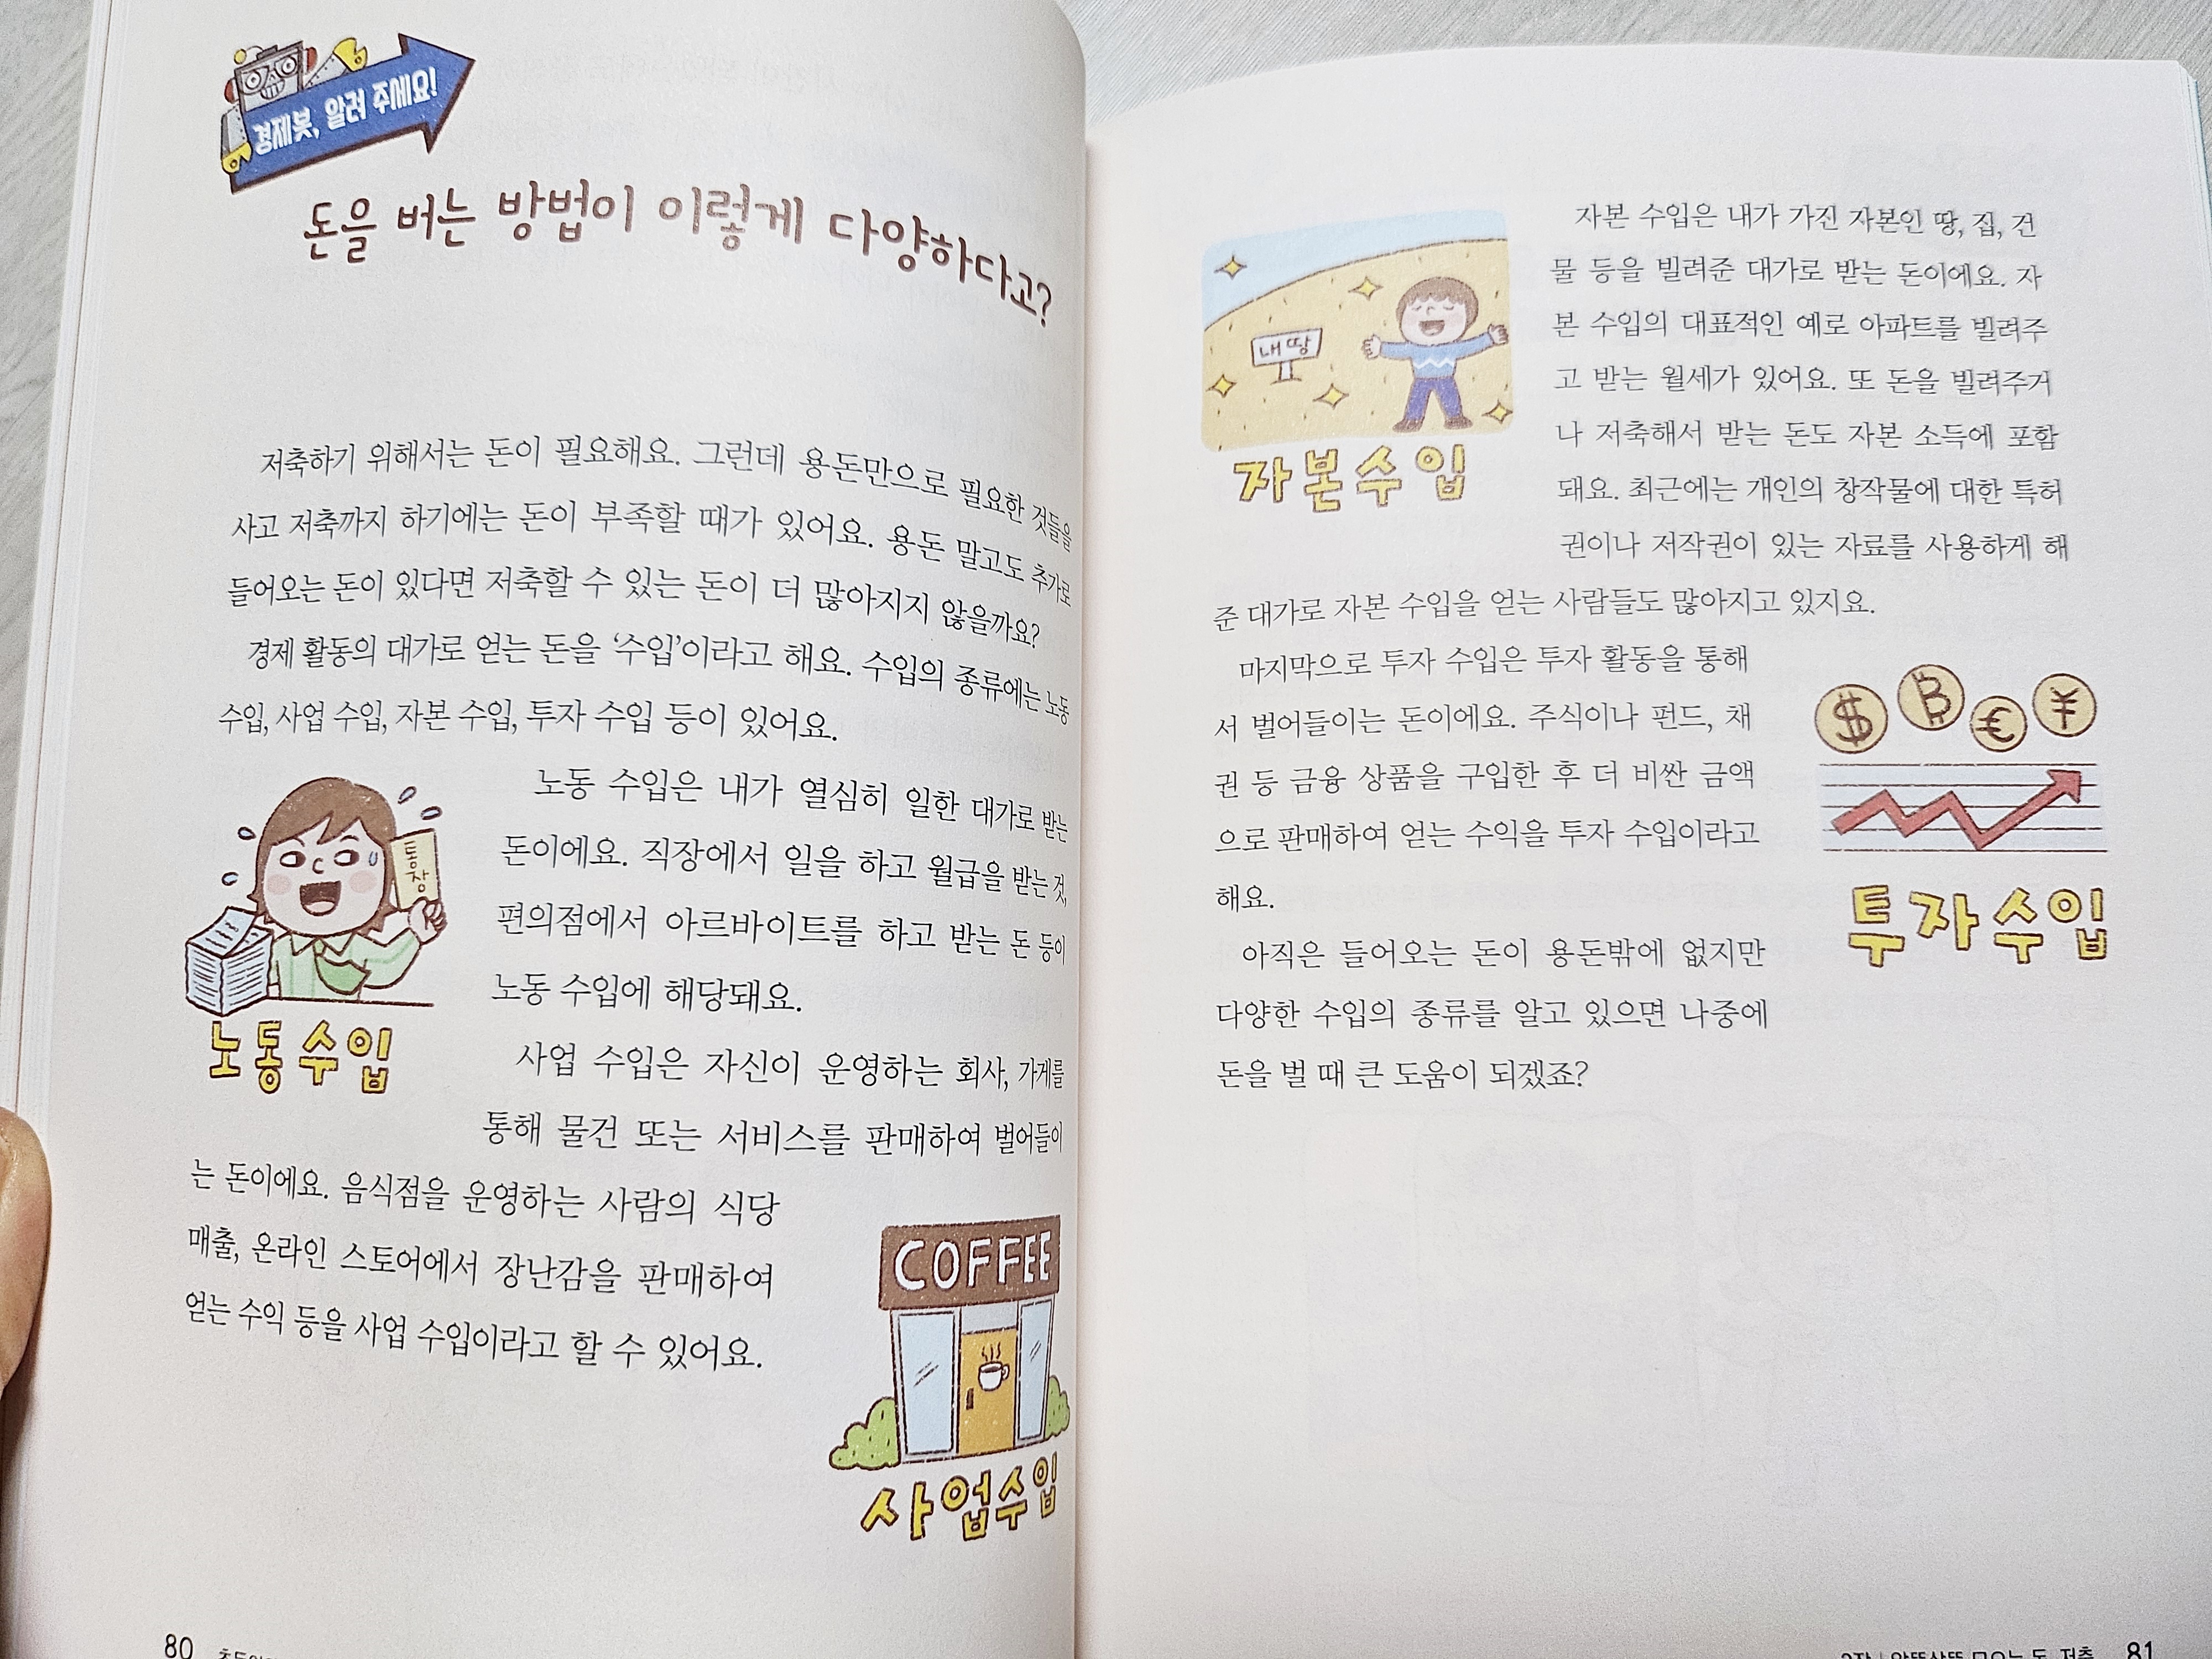 경제봇, 알려 주세요!
돈을 버는 방법이 이렇게 다양하다고?
저축하기 위해서는 돈이 필요해요. 그런데 용돈만으로 필요한 것들을
사고 저축까지 하기에는 돈이 부족할 때가 있어요. 용돈 말고도 추가로
들어오는 돈이 있다면 저축할 수 있는 돈이 더 많아지지 않을까요?
경제 활동의 대가로 얻는 돈을 ‘수입’이라고 해요. 수입의 종류에는 노동
수입, 사업 수입, 자본 수입, 투자 수입 등이 있어요.
통장
노동수입
노동 수입은 내가 열심히 일한 대가로 받는
돈이에요. 직장에서 일을 하고 월급을 받는 것,
편의점에서 아르바이트를 하고 받는 돈 등이
노동 수입에 해당돼요.
사업 수입은 자신이 운영하는 회사, 가게를
통해 물건 또는 서비스를 판매하여 벌어들이
는 돈이에요. 음식점을 운영하는 사람의 식당
매출, 온라인 스토어에서 장난감을 판매하여
얻는 수익 등을 사업 수입이라고 할 수 있어요.
COFFEE
사업수입
80
내 땅
자본수입
자본 수입은 내가 가진 자본인 땅, 집, 건
물 등을 빌려준 대가로 받는 돈이에요. 자
본 수입의 대표적인 예로 아파트를 빌려주
고 받는 월세가 있어요. 또 돈을 빌려주거
나 저축해서 받는 돈도 자본 소득에 포함
돼요. 최근에는 개인의 창작물에 대한 특허
권이나 저작권이 있는 자료를 사용하게 해
준 대가로 자본 수입을 얻는 사람들도 많아지고 있지요.
마지막으로 투자 수입은 투자 활동을 통해
서 벌어들이는 돈이에요. 주식이나 펀드, 채
권 등 금융 상품을 구입한 후 더 비싼 금액
으로 판매하여 얻는 수익을 투자 수입이라고
해요.
$ B € ¥
투자수입
아직은 들어오는 돈이 용돈밖에 없지만
다양한 수입의 종류를 알고 있으면 나중에
돈을 벌 때 큰 도움이 되겠죠?
81